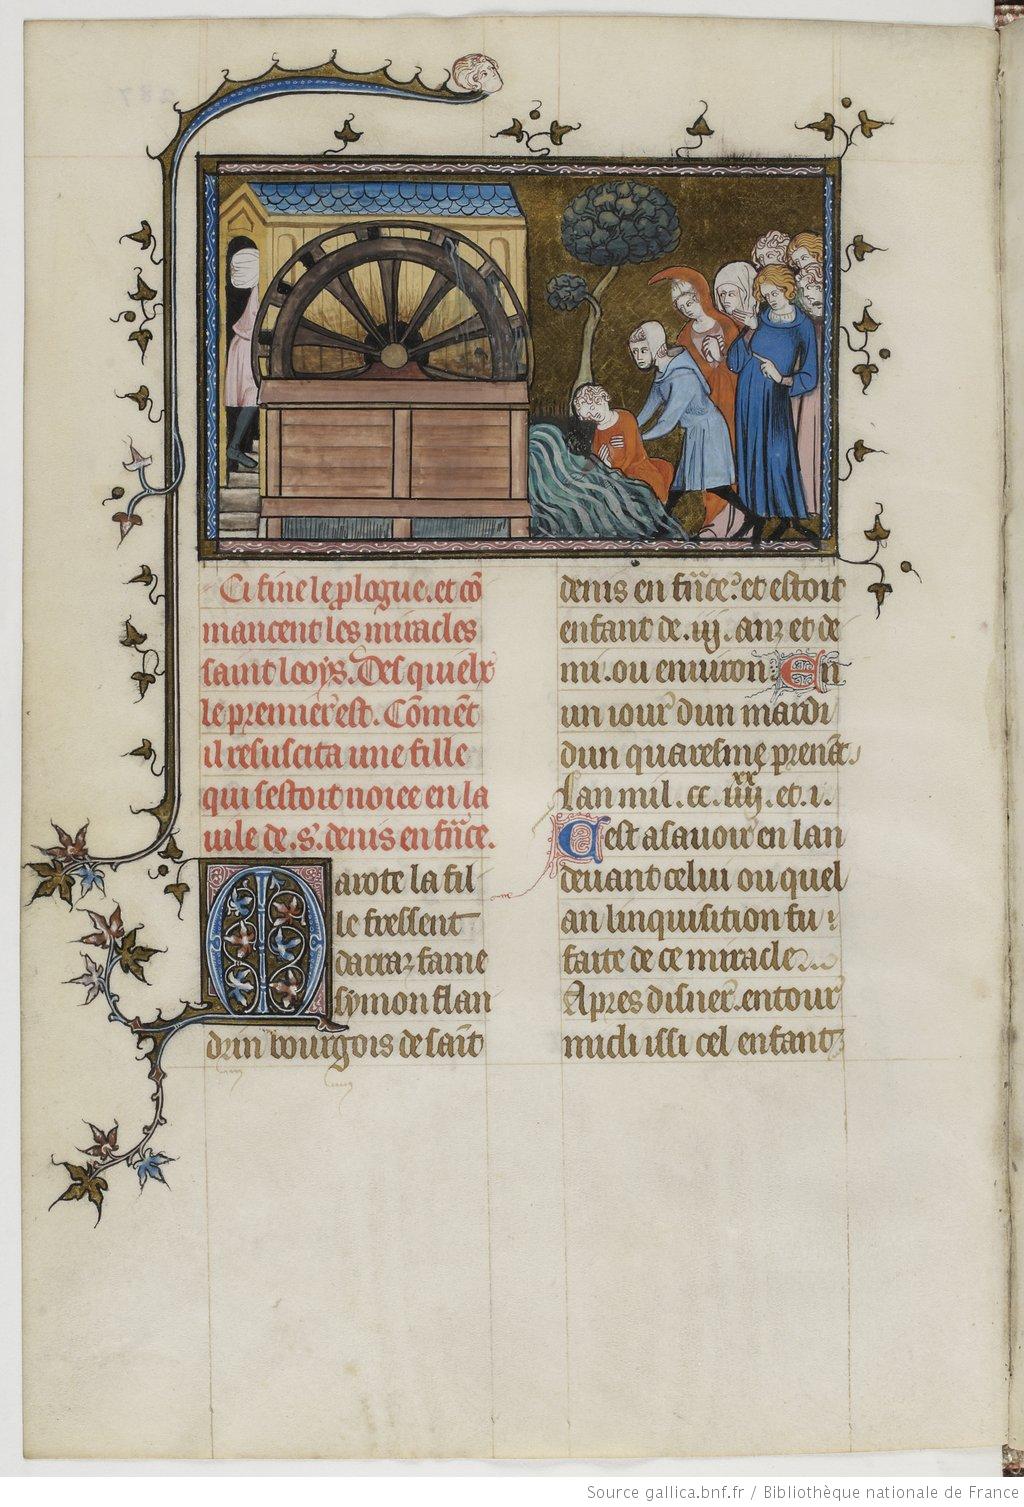 Ci fine le plogue. et cõ
mancent les miracles
saint looÿs. Des quielx
le premier est. Cõment
il resuscita une fille
qui sestoit noiee en la
uile de .s. denis en frãce.
Marote la fil
le fressent
darraz fame
symon flan
drin bourgois de saĩt
denis en frãce. et estoit
enfant de .iij. anz et de
mi. ou enuiron En
un iour dun mardi
dun quaresme prenãt.
Lan mil .cc. iiij xx. et .i.
Cest a sauoir en lan
deuant celui ou quel
an linquisition fu
faite de ce miracle
Apres disner. entour
midi issi cel enfant
Source gallica.bnf.fr / Bibliothèque nationale de France